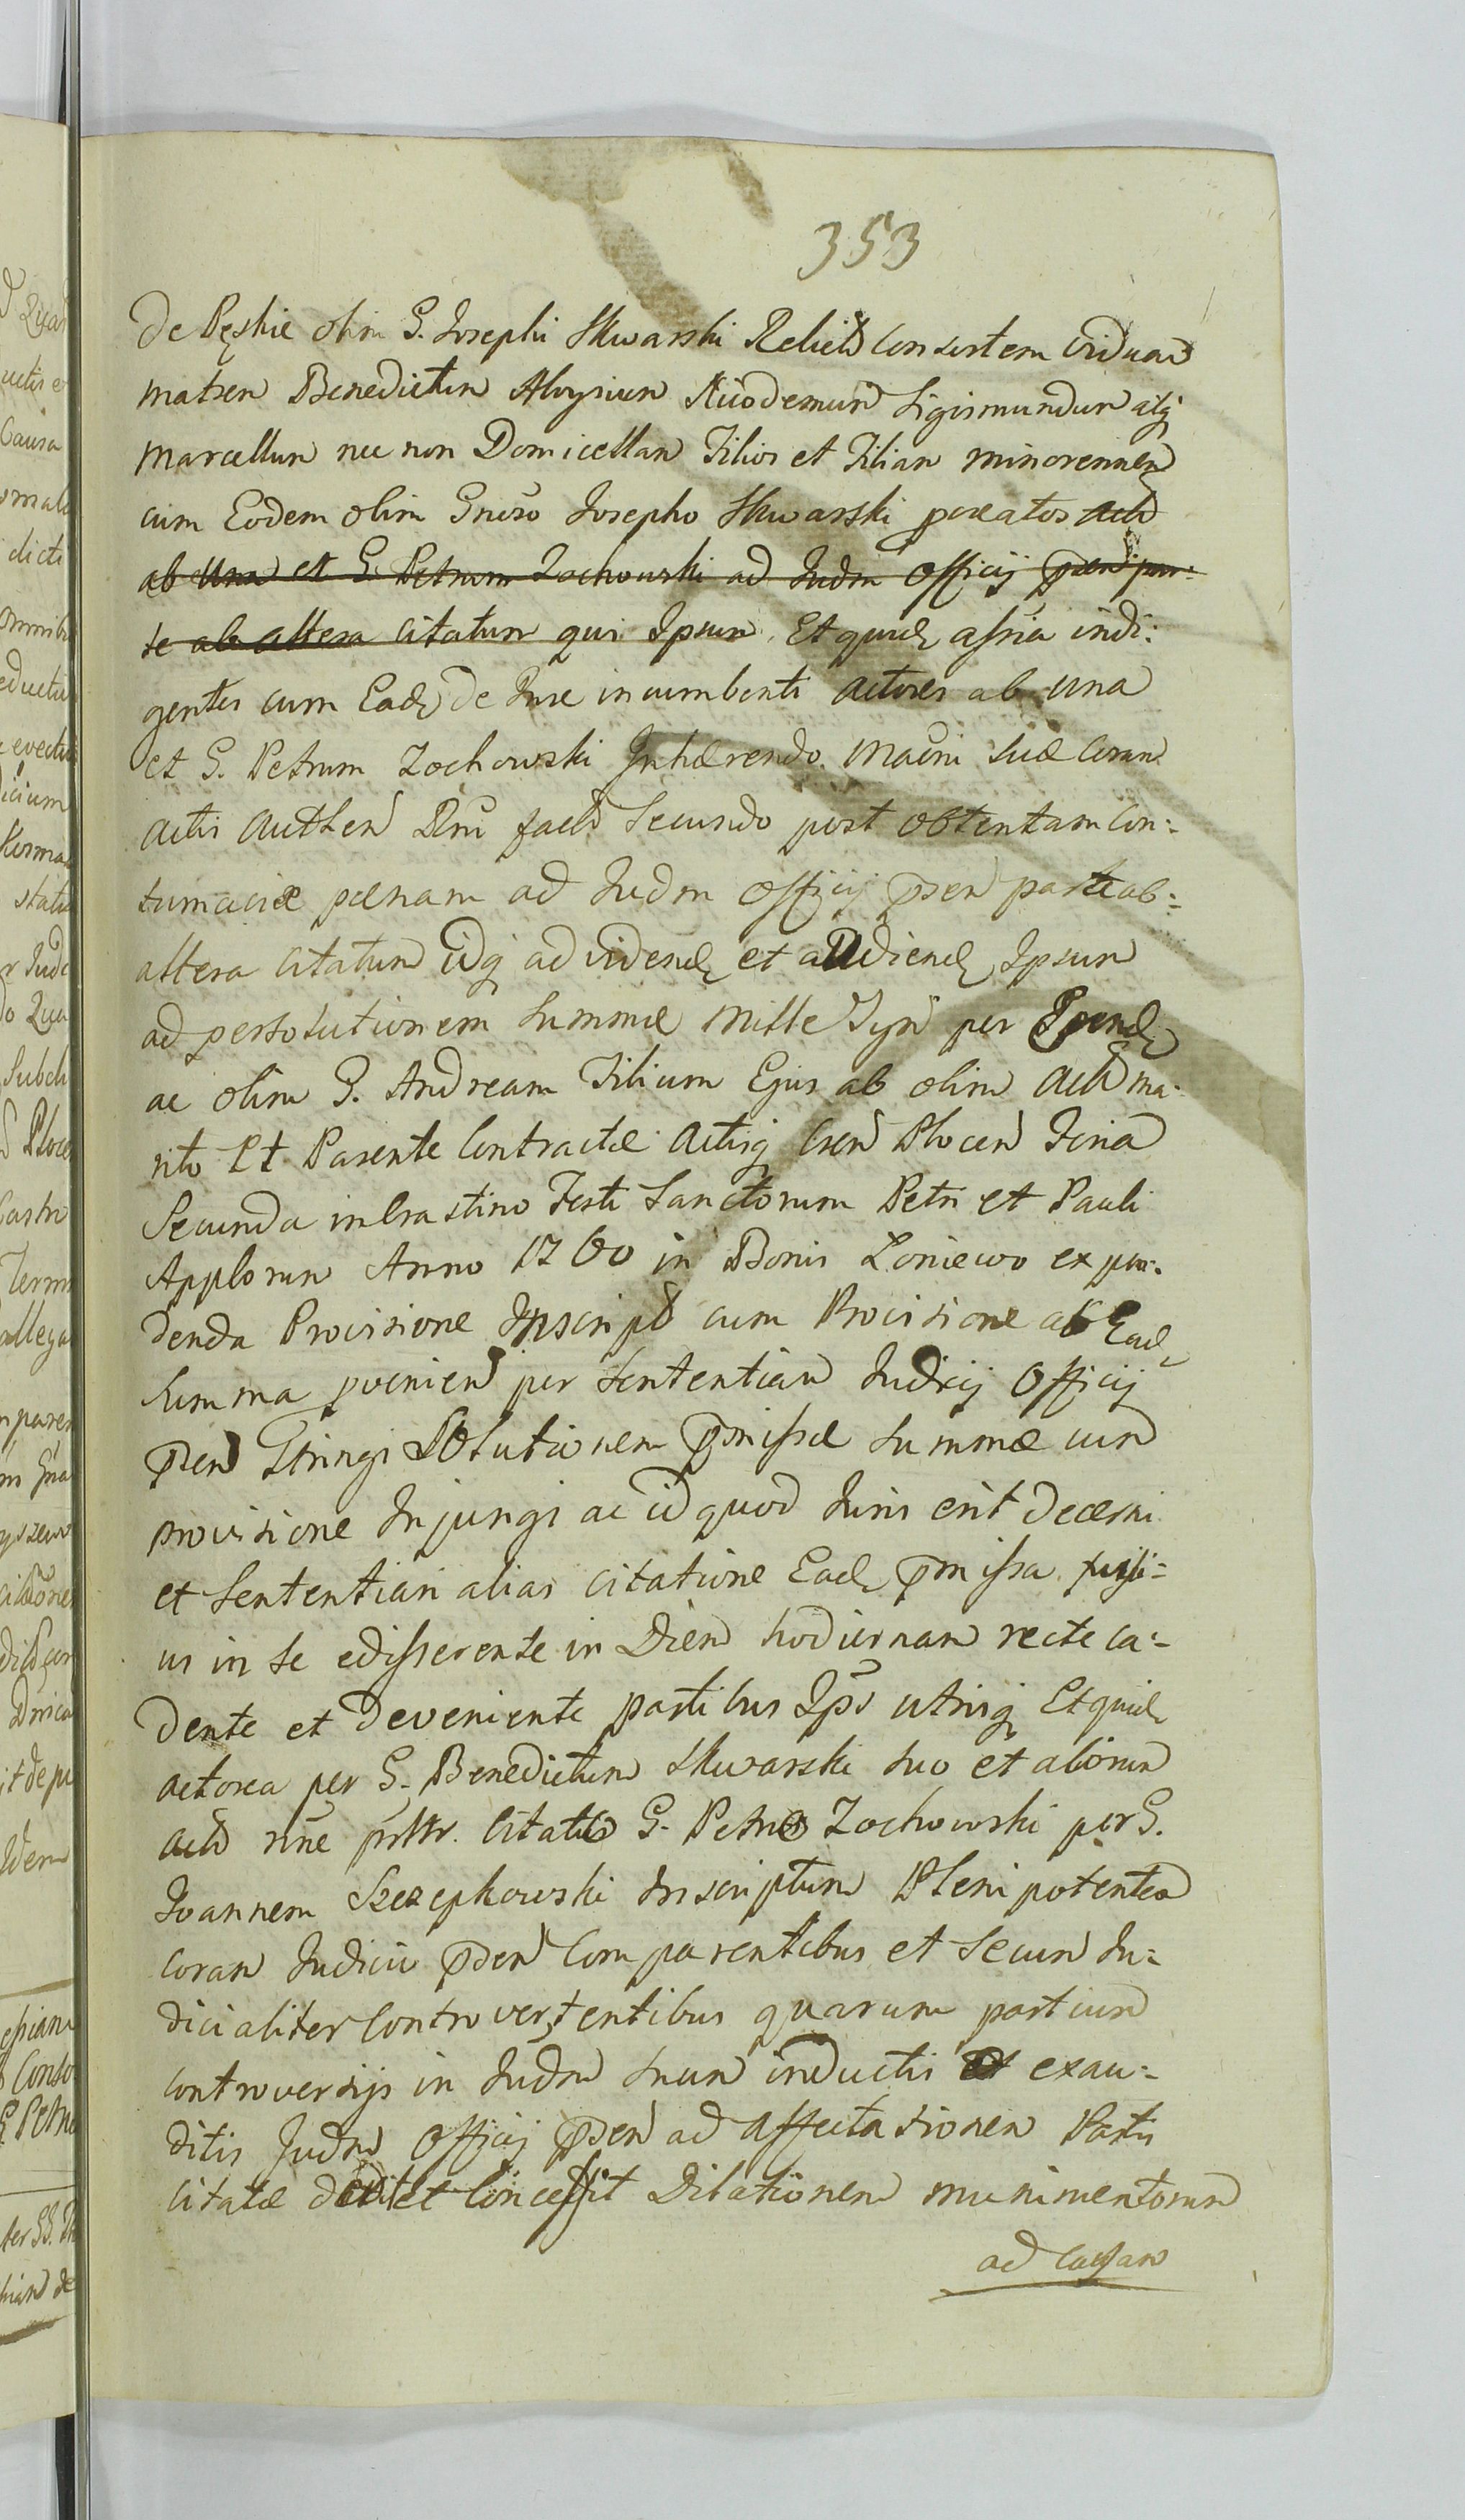 353
De Pęskie olim G. Josephi Skwarski Relictã Consortem Viduam
Matrem Benedictum Aloysium Nicodemum Sigismundum atq
Marcellum nec non Domicellam Filios et Filiam minorennem
cum Eodem olim Gnõso Josepho Skwarski procreatos Actõ
ab Una et G. Petrum Zochowski ad Judm Officij pñen par:
te ab altera citatum qui Ipsum. Et quid assria indi:
gentes cum Ead de Jure incumbenti Actores ab una
et G. Petrum Zochowski Inhærendo Mačni suæ Coram
Actis Authen Dni fact Secundo post obtentam Con:
tumaciæ pænam ad Judm Officij pñen parte ab:
altera Citatum idq ad videnđ et audienđ Ipsum
ad persolutionem Summæ Mille Tyñ per Eund
ac olim G. Andream Filium Ejus ab olim Actõ Ma:
rito Et Parente Contractæ Actisq Csen Plocen Feria
Secunda in Crastino Festi Sanctorum Petri et Pauli
Applorum Anno 1760 in Bonis Zoniewo expen:
denda Provisione Inscript cum Provisione ab Ead
Summa provenien per Sententiam Judicij Officij
pñen Stringi Solutionem pmissæ Summæ cum
provisione Injungi ac id quod Juris erit Decerni
et Sententiari alias Citatione Ead pmissa fusi:
us in se edisserente in Diem hodiernam recte ca:
dente et deveniente partibus Ips utrisq Et quid
actorea per G. Benedictum Skwarski suo et aliorum
Actõ nñe prttr. Citatã G. Petro Zochowski per G.
Joannem Szczepkowski Inscriptum Plenipotentem
Coram Judicio pñen Comparentibus et Secum Ju:
dicialiter Controvertentibus quarum partium
controversijs in Judm suum inductis et exau:
ditis Judm Officij pñen ad affectationem Partis
Citatæ dedit et Concessit Dilationem munimentorum
ad Causam